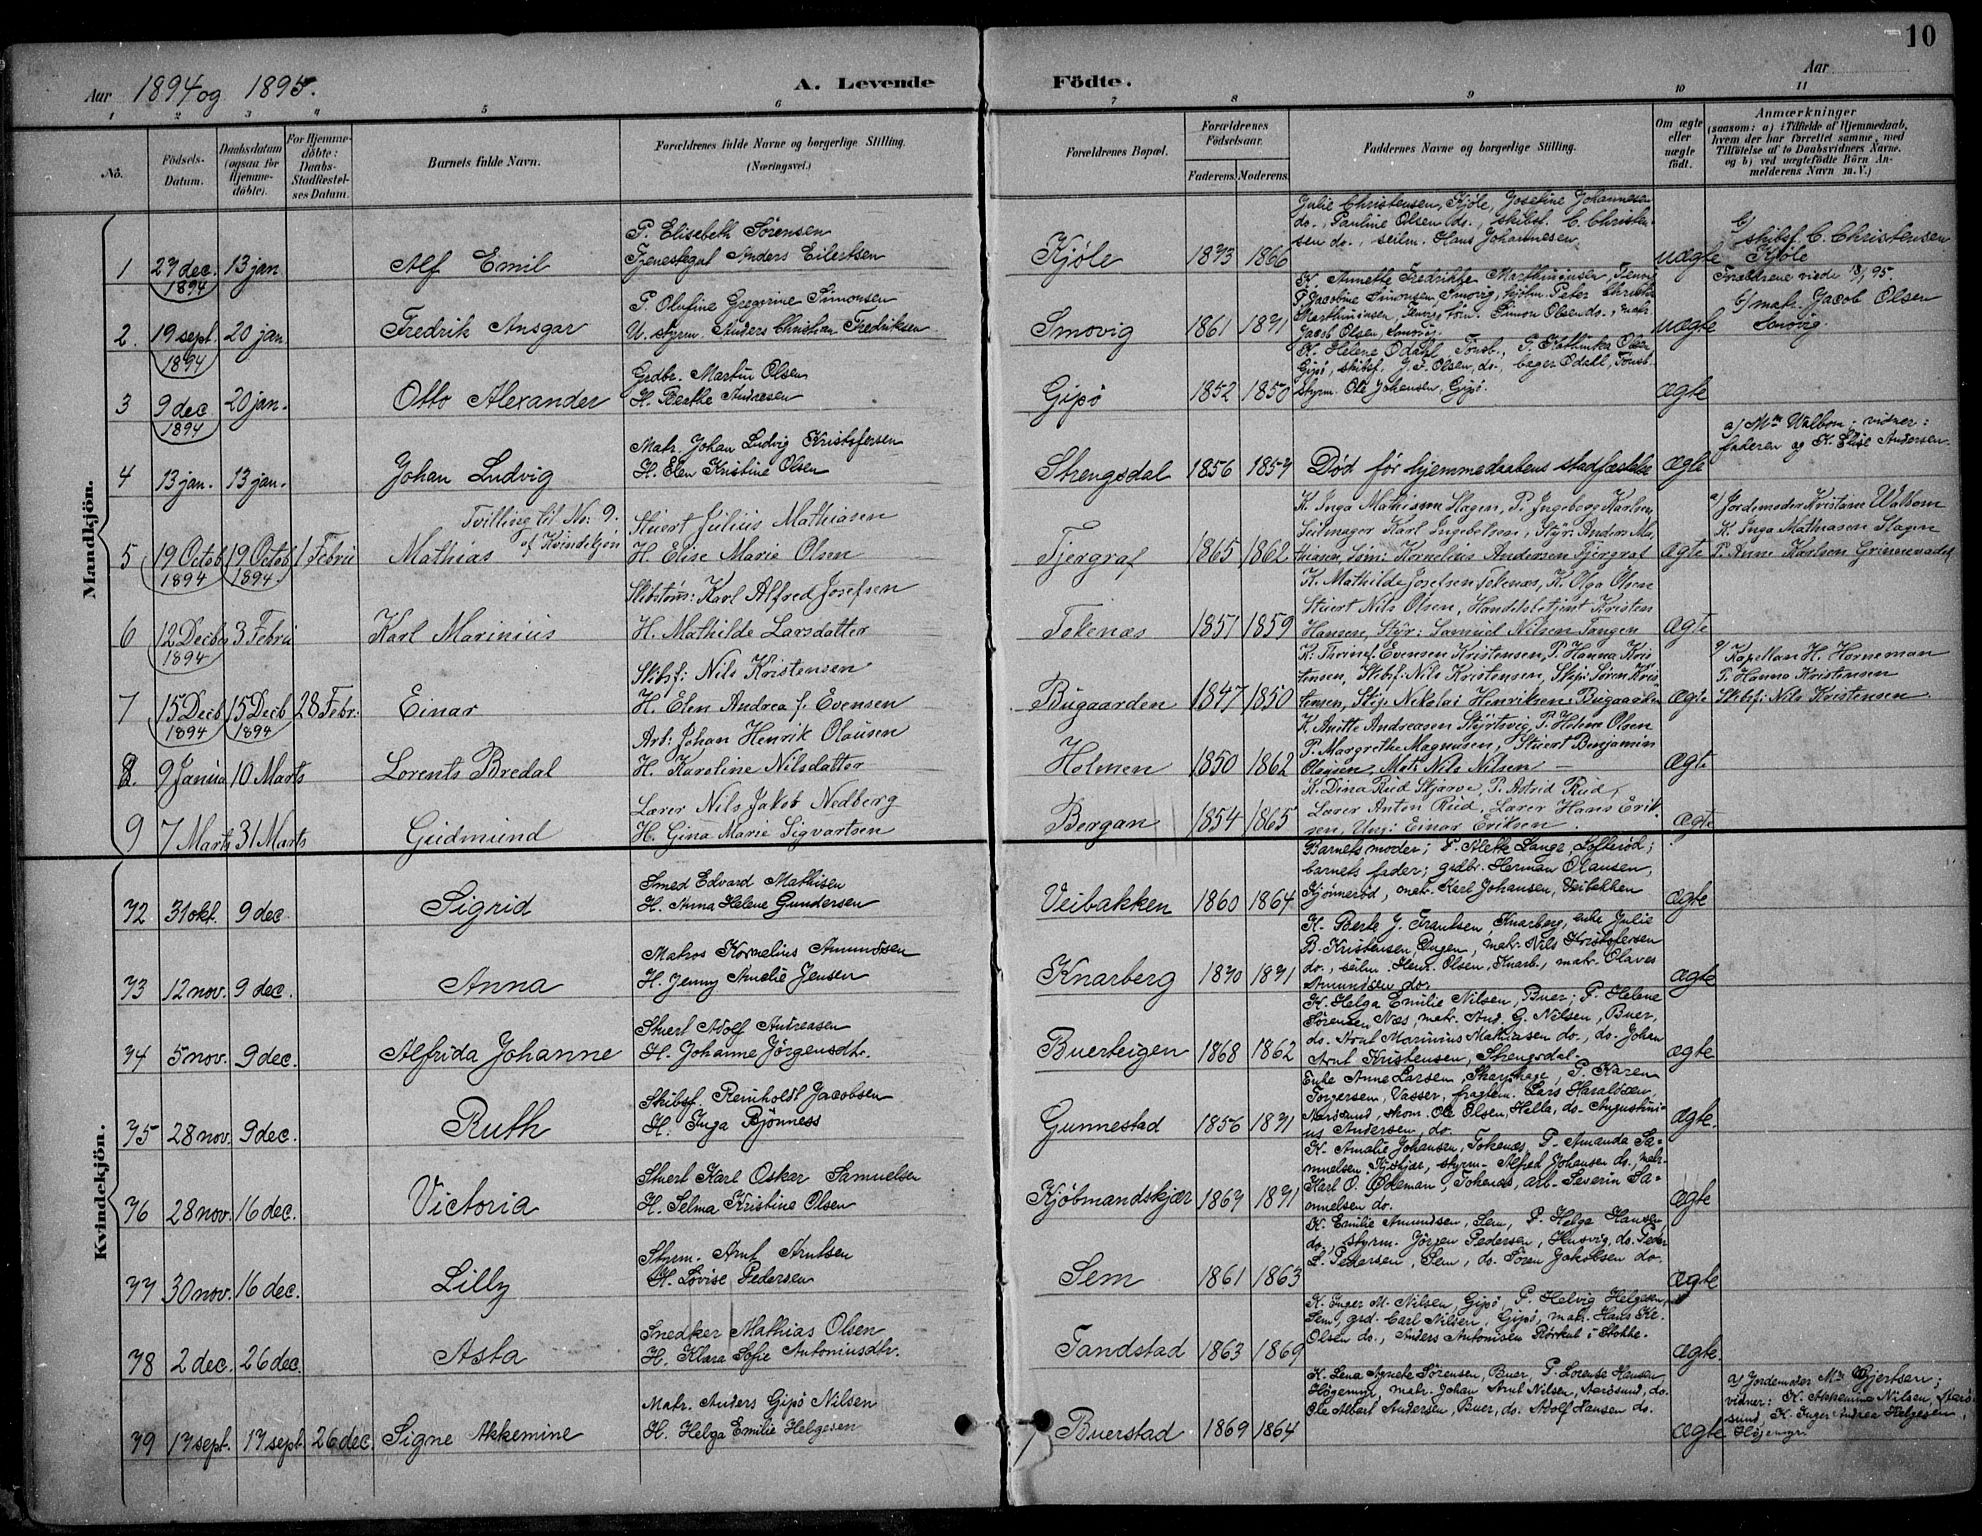 10
Aar 1894 og 1895.
A. Levende Födte.
Aar
1 2 3 4 5 6 7 8 9 10 11
No.
Födsels-Datum.
Daabsdatum (ogsaa for Hjemmedöbte).
For Hjemmedöbte: Daabs-Stadfæstelses Datum.
Barnets fulde Navn.
Forældrenes fulde Navne og borgerlige Stilling. (Næringsvei.)
Forældrenes Bopæl.
Forældrenes Födselsaar.
Faderens. Moderens.
Faddernes Navne og borgerlige Stilling.
Om ægte eller uægte födt.
Anmærkninger
(saasom: a) i Tilfælde af Hjemmedaab,
hvem der har forrettet samme, med
Tilföielse af to Daabsvidners Navne,
og b) ved uægtefödte Börn Anmelderens Navn m. V.)
Mandkjön.
1 27 dec. 1894 13 jan Alf Emil
P. Elisabeth Sørensen
Tjenestegut Anders Eilertsen
Kjøle 1873 1866
Julie Christensen, Kjøle, Josefine Johannesen
do., Pauline Olsen do., skibsf. C. Christen-
sen do., seilm. Hans Johannesen
uægte
skibsf. C. Christensen
Kjøle
2. 19 sept. 1894 20 jan. Fredrik Ansgar
P. Olufine Gregorine Simonsen
U. styrm. Anders Christian Fredriksen
Smovig 1861 1871
K. Annette Fredrikke Marthinusen,
P. Jacobine Simonsen, Smovig,
Marthinusen, Simon Olsen do., matr.
Jacob Olsen, Smovig.
uægte
Forældrene viede
matr. Jacob Olsen
Smovig.
3 9 dec 1894 20 jan. Otto Alexander
Grdbr. Martin Olsen
H. Berthe Andresen
Gipø 1852 1850
K. Helene Odahl, Tønsb., P. Kathinka Olsen
Gipø, skibsf. J. F. Olsen, do., bager Odahl, Tønsb.
styrm. Ole Johensen, Gipø.
ægte
4 13 jan. 13 jan. Johan Ludvig
Matr. Johan Ludvig Kristofersen
H. Elen Kristine Olsen
Strengsdal 1856 1857
Død før hjemmedaabens stadfæstelse
ægte
a) Mm Walbom; vidner:
faderen og K. Elise Andersen
5 19 Octob 1894 19 Octob 1894 1 Febru
Tvilling til No: 9.
af Kvindekjøn
Mathias
Stuert Julius Mathiasen
H. Elise Marie Olsen
Fjergraf 1865 1862
K. Inga Mathiasen Slagen, P. Ingeborg Karlsen,
Seilmager Karl Ingebretsen, Styr: Anders Ma-
thiasen, Søm: Kornelius Andersen Fjergraf
ægte
a) Jordemoder Kristiane Walbom
K. Inga Mathiasen Slagen
P. Anna Karlsen Grimenvadet
6 12 Decbr 1894 3 Febru Karl Marinius
Skibstøm: Karl Alfred Josefsen
H. Mathilde Larsdatter
Tekenæs 1857 1859
K. Mathilde Josefsen Tekenæs, K. Olga Olsen
Stuert Nils Olsen, Handelsbetjent Kristen
Hansen, Styr: Samuel Nilsen Tangen
ægte
7 15 Decb 1894 15 Decb 1894 28 Febr: Einar
Skibsf: Nils Kristensen
H. Elen Andrea f. Evensen
Bugaarden 1847 1850
K: Thrine Evensen Kristensen, P. Hanna Kris-
tensen, Skibsf: Nils Kristensen, Skip: Søren Kris-
tensen, Skip. Nikolai Henriksen Bugaarden
ægte
a) Kapellan H. Horneman
P. Hanna Kristensen
Skibsf: Nils Kristensen
8. 9 Janua 10 Marts Lorents Bredal
Arb: Johan Henrik Olausen
H. Karoline Nilsdatter
Holmen 1850 1862
K. Anitte Andreasen Styrtsvig, P. Helene Olsen
P. Margrethe Magnusen, Stuert Benjamin
Olausen, Mat: Nils Nilsen
ægte
9 7 Marts 31 Marts Gudmund
Lærer Nils Jakob Nedberg
H. Gina Marie Sigvartsen
Bergan 1854 1865
K. Dina Rud Skjærve, P. Astrid Rud,
Lærer Anton Rud, Lærer Hans Erik-
sen, Ung: Einar Eriksen.
ægte
Kvindekjön.
72 31 okt. 9 dec. Sigrid
Smed Edvard Mathisen
H. Anna Helene Gundersen
Veibakken 1860 1864
Barnets moder; P. Alette Lange, Lofterød;
barnets fader; grdbr. Herman Olausen,
Kjønnerød, matr. Karl Johansen, Veibakken
ægte
73 12 nov. 9 dec. Anna
Matros Kornelius Amundsen
H. Jenny Amelie Jensen
Knarberg 1870 1871
K. Berte J. Frantsen, Knarberg, enke Julie
B. Kristensen, Dugen, matr. Nils Kristofersen
do., seilm. Henr. Olsen, Knarb., matr. Olaves
Amundsen do.
ægte
74 5 nov. 9 dec. Alfrida Johanne
Stuert Adolf Andreasen
H. Johanne Jørgensdtr.
Buerteigen 1868 1862
K. Helga Emilie Nilsen, Buer; P. Helene
Sørensen Næs, matr. And. G. Nilsen, Buer,
do. Arnt Marinius Mathiasen do., do. Johan
Arnt Kristensen, Strengsdal.
ægte
75 28 nov. 9 dec. Ruth
Skibsf. Reinholdt Jacobsen
H. Inga Bjønness
Gunnestad 1856 1871
Enke Anne Larsen, P. Karen
Torgersen, Vasser, fragtem. Lars Haraldsen
Aarøsund, skom. Ole Olsen, Hella, do. Augustini-
us Andersen, do.
ægte.
76 28 nov. 16 dec. Victoria
Stuert Karl Oskar Samuelsen
H. Selma Kristine Olsen
Kjøbmandskjær 1869 1871
K. Amalie Johansen, Tokenæs, P. Amanda Sa-
muelsen, Kjøbkjær, styrm. Alfred Johansen do., matr.
Karl O. Ødeman, Tokenæs, arb. Severin Sa-
muelsen do.
ægte
77 30 nov. 16 dec. Lilly
Styrm. Arnt Arntsen
H. Lovise Pedersen
Sem 1861 1863
K. Emilie Amundsen, Sem, P. Helga Hansen
do., styrm. Jörgen Pedersen, Husvig, do. Peder
L. Pedersen, Sem, do. Søren Jakobsen do.
ægte
78 2 dec. 26 dec. Asta
Snedker Mathias Olsen
H. Klara Sofie Antoniusdtr.
Tandstad 1863 1869
K. Inger M. Nilsen, Gipø, P. Helvig Helgesen,
Sem, grd. Carl Nilsen, Gipø, matr. Hans Kr.
Olsen do., Anders Antonisen Rørkul i Stokke.
ægte.
79 17 sept. 17 sept. 26 dec. Signe Akkemine
Matr. Anders Gipø Nilsen
H. Helga Emilie Helgesen
Buerstad 1869 1864
K. Lena Agnete Sörensen, Buer, P. Lorense Hansen,
Høgemyr, matr. Johan Arnt Nilsen, Aarøsund, do.
Ole Albert Andersen, Buer, do. Adolf Hansen do.
ægte
a) Jordemoder Mm Gjertsen;
vidner: K. Akkemine Nilsen, Aarø-
sund, K. Inger Andrea Helgesen,
Højemyr.